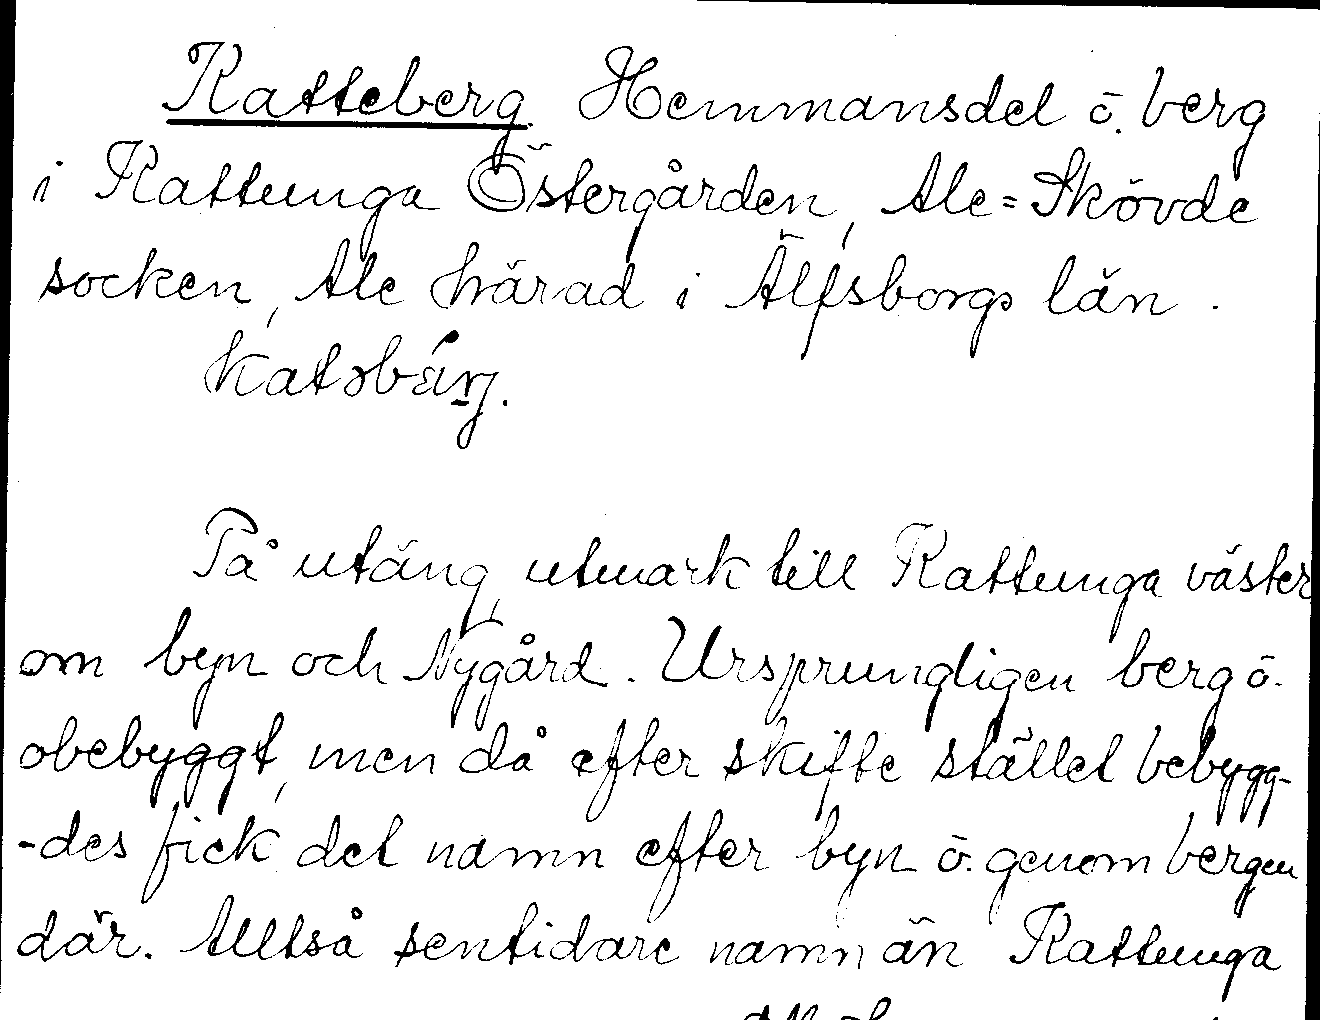 Katteberg. Hemmansdel ö. berg
i Kattunga Östergården, Ale=Skövde
socken, Ale härad i Älfsborgs län.
katəbárj.
På utäng, utmark till Kattunga väster
om byn och Nygård. Ursprungligen berg ö.
obebyggt, men då efter skifte stället bebygg-
-des fick det namn efter byn ö. genom bergen
där. Alltså sentidare namn än Kattunga